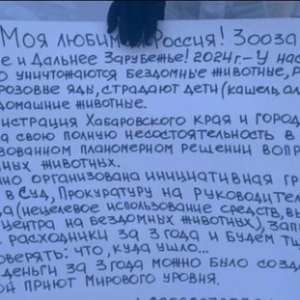 Моя любимая Россия! Зооза
е и Дальнее Зарубежье! 2024г.- У нас
о уничтожаются бездомные животные, р
розовые яды, страдают дети (кашель, ал
домашние животные.
нистрация Хабаровского края и город
ла свою полную несостоятельность в
зованном планомерном решении вопр
ных животных.
но организована инициативная гр
в Суд, Прокуратуру на руководител
да (нецелевое использование средств, вы
центра на бездомных животных), зап
расходники за 3 года и будем ти
оверять: что, куда ушло...
деньги за 3 года можно было созд
ой приют Мирового уровня.